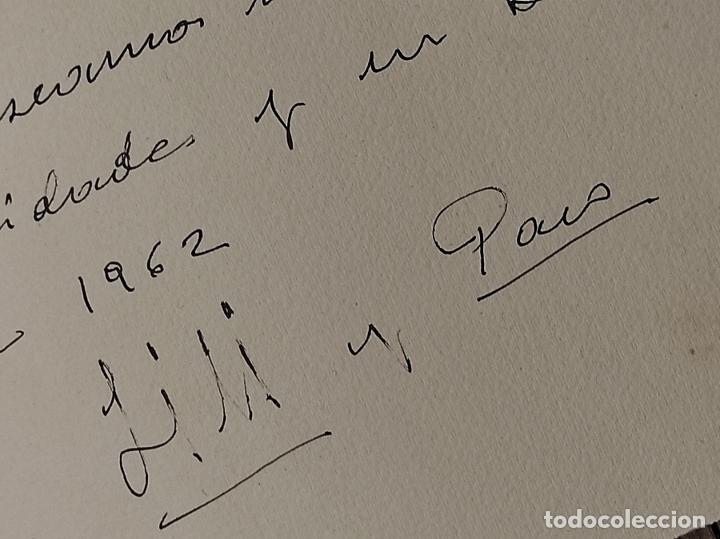 seamos
idades y un
1962
Lili y Paco
todocoleccion